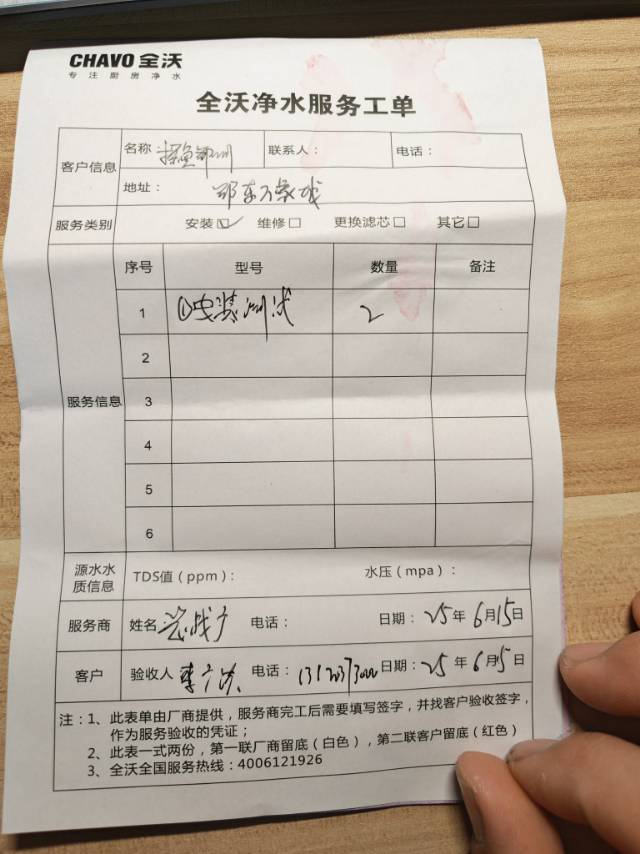 CHAVO 全沃
专注厨房净水
全沃净水服务工单
客户信息
名称
联系人：
电话：
地址：
服务类别
安装☑ 维修□ 更换滤芯□ 其它□
服务信息
序号 型号 数量 备注
1 ①安装测试 2
2
3
4
5
6
源水水
质信息
TDS值（ppm）： 水压（mpa）：
服务商 姓名 电话： 日期：25年6月15日
客户 验收人 电话： 日期：25年6月15日
注：1、此表单由厂商提供，服务商完工后需要填写签字，并找客户验收签字，
作为服务验收的凭证；
2、此表一式两份，第一联厂商留底（白色），第二联客户留底（红色）
3、全沃全国服务热线：4006121926